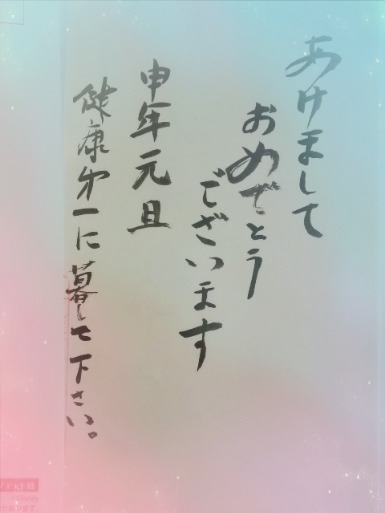 あけまして
おめでとう
ございます
申年元旦
健康第一に暮して下さい。